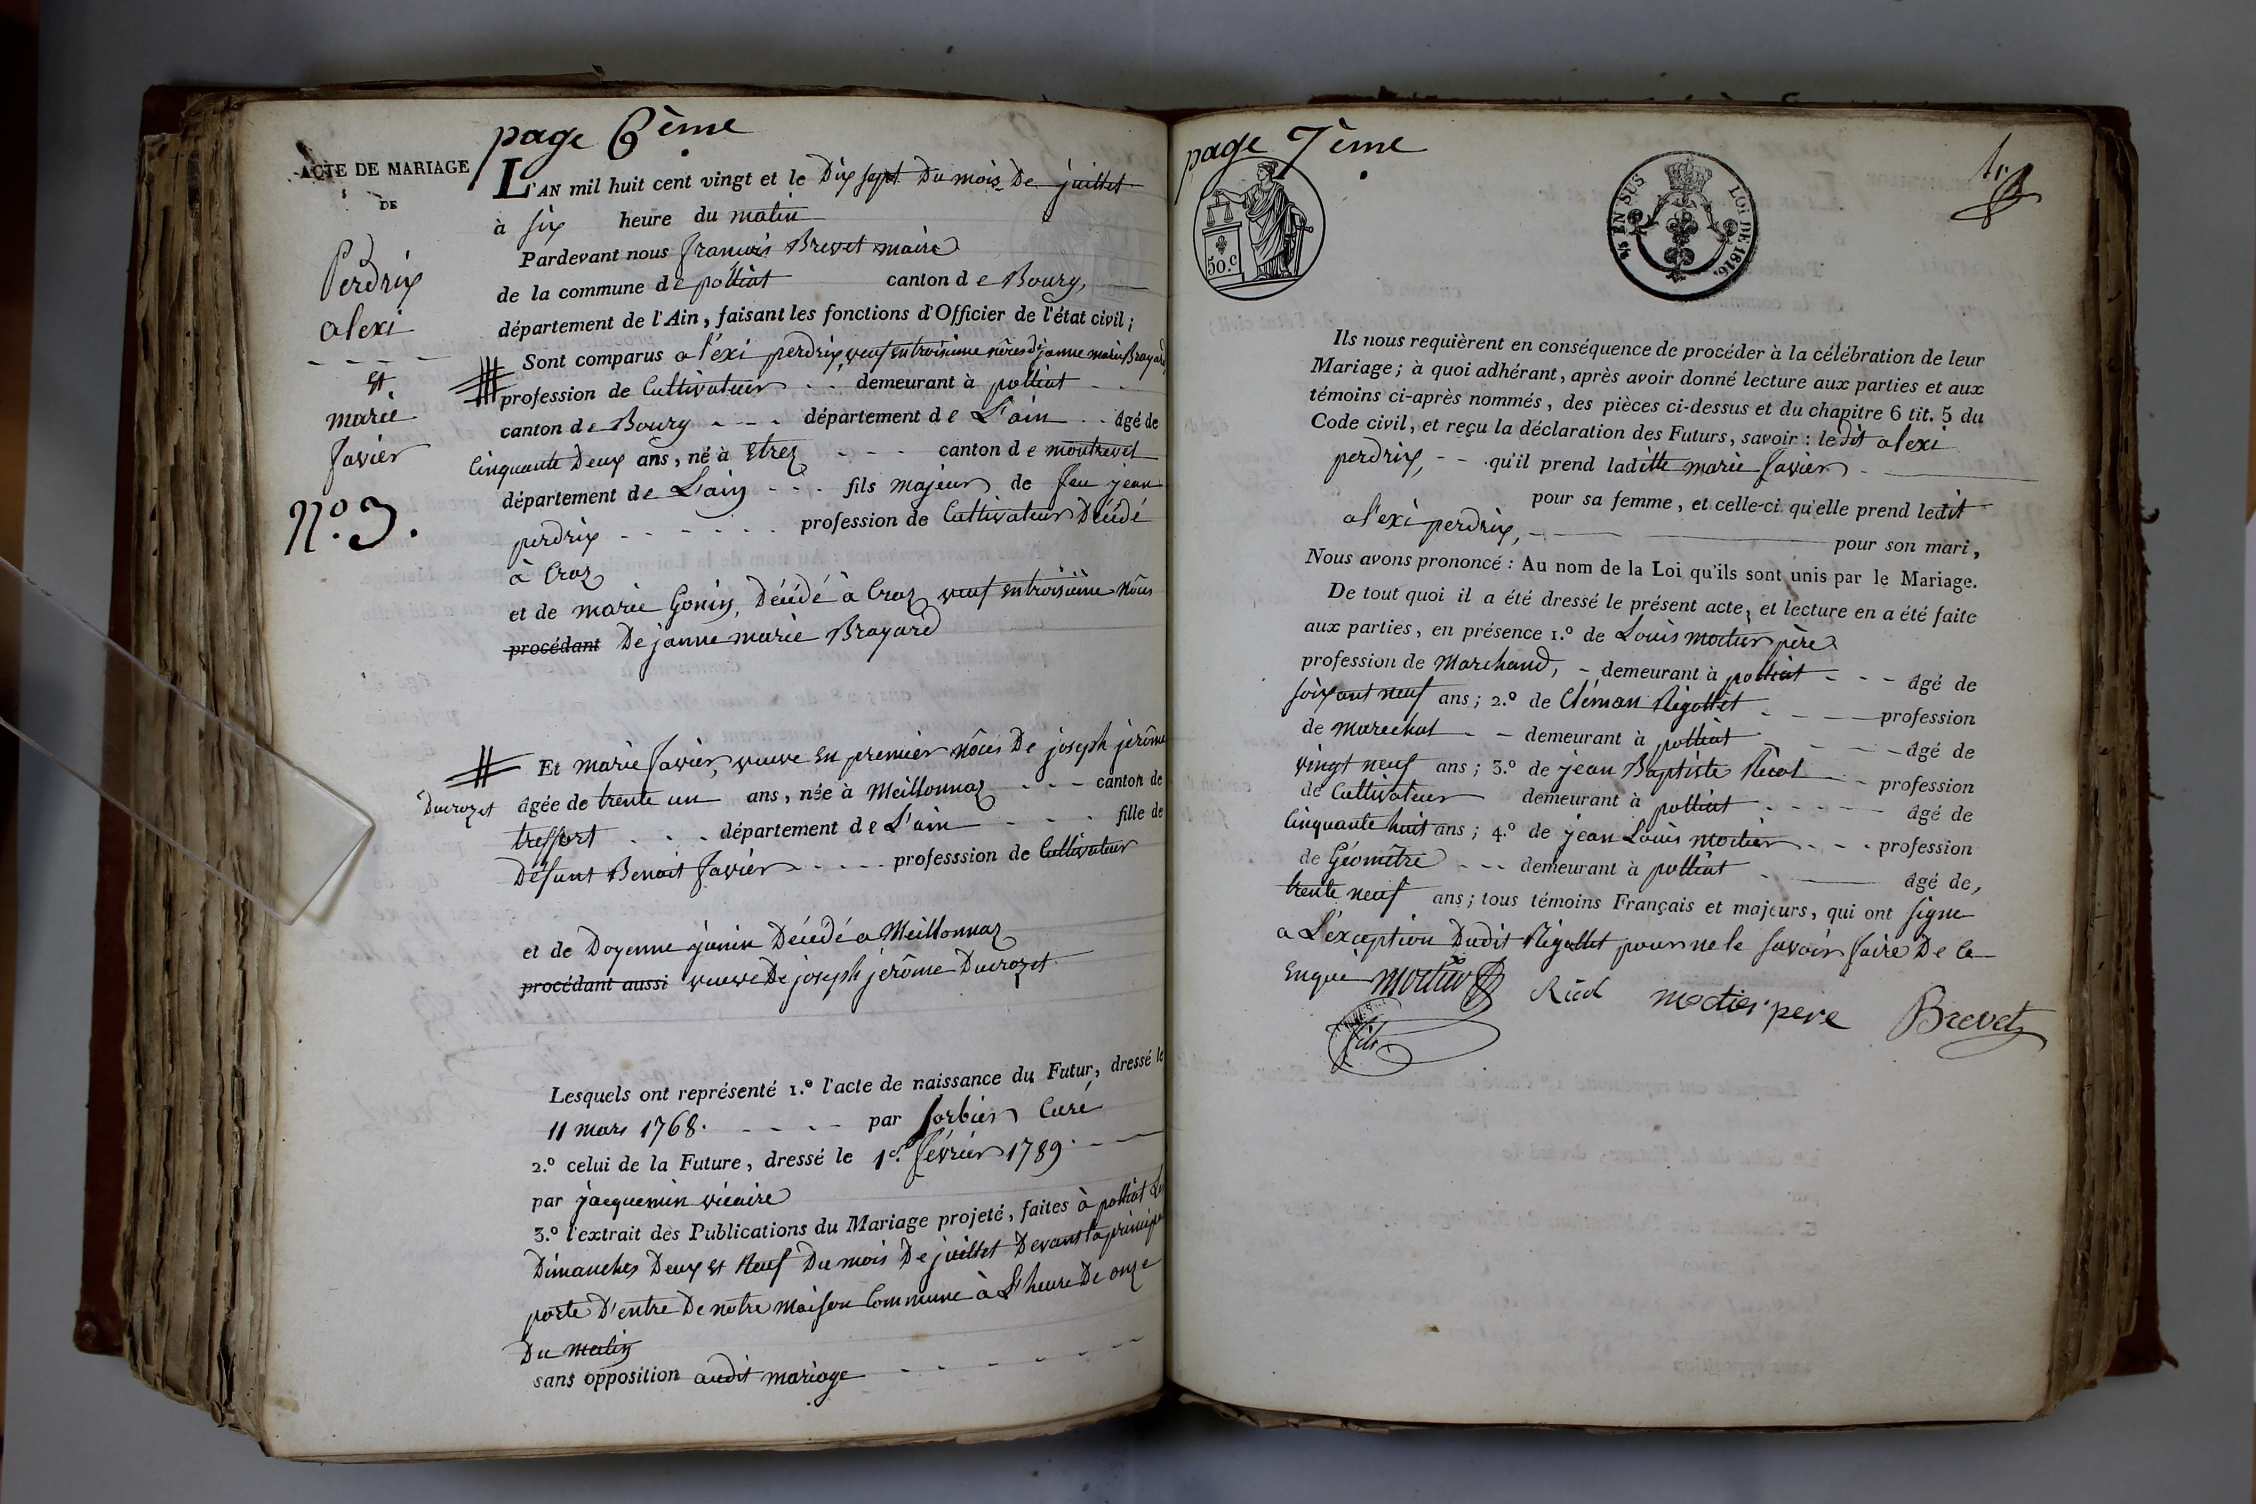 page 6ème
ACTE DE MARIAGE
DE
Perdrix
alexi
et
marie
favier
N.º 3.
L'AN mil huit cent vingt et le Dix sept Du mois De juillet
à six heure du matin
Pardevant nous francois Brevet maire
de la commune de polliat canton de Bourg,
département de l'Ain, faisant les fonctions d'Officier de l'état civil;
Sont comparus aléxi perdrix, veuf en troisième nôces De janne marie Brayard,
profession de Cultivateur demeurant à polliat
canton de Bourg département de L'ain âgé de
Cinquante Deux ans, né à Etrez canton de montrevel
département de L'ain fils majeur de feu jean
perdrix profession de Cultivateur Décédé
à Craz
et de marie Gonin, Décédé à Craz veuf en troisième Nôces
procédant De janne marie Brayard
Et marie favier, veuve En premier nôces De joseph jérôme
Ducrozet âgée de trente un ans, née à Meillonnaz canton de
treffort département de L'ain fille de
Défunt Benoit favier professsion de Cultivateur
et de Doyenne janin Décédé a Meillonnaz
procédant aussi veuve De joseph jérôme Ducrozet
Lesquels ont représenté 1.º l'acte de naissance du Futur, dressé le
11 mars 1768. par sorbier Curé
2.º celui de la Future, dressé le 1er. février 1789.
par jacquemin vicaire
3.º l'extrait des Publications du Mariage projeté, faites à polliat Les
Dimanches Deux et Neuf Du mois De juillet Devant la principe
porte D'entre De notre maison Commune à L'heure De onze
Du matin
sans opposition audit mariage
page 7ème
50.c
EN SUS LOI DE 1816.
Ils nous requièrent en conséquence de procéder à la célébration de leur
Mariage; à quoi adhérant, après avoir donné lecture aux parties et aux
témoins ci-après nommés, des pièces ci-dessus et du chapitre 6 tit. 5 du
Code civil, et reçu la déclaration des Futurs, savoir: ledit alexi
perdrix, qu'il prend laditte marie favier
pour sa femme, et celle-ci qu'elle prend ledit
aléxi perdrix, pour son mari,
Nous avons prononcé: Au nom de la Loi qu'ils sont unis par le Mariage.
De tout quoi il a été dressé le présent acte, et lecture en a été faite
aux parties, en présence 1.º de Louis mortier père
profession de Marchand, demeurant à polliat âgé de
soixant neuf ans; 2.º de Cléman Rigollet profession
de marechal demeurant à polliat âgé de
vingt neuf ans; 3.º de jean Baptiste Ricol profession
de Cultivateur demeurant à polliat âgé de
Cinquante huit ans; 4.º de jean Louis mortier profession
de Géomêtre demeurant à polliat âgé de,
trente neuf ans; tous témoins Français et majeurs, qui ont signe
a L'éxception Dudit Rigollet pour ne le savoir faire De ce
Enquis mortier Ricol mortier pere Brevet
fils